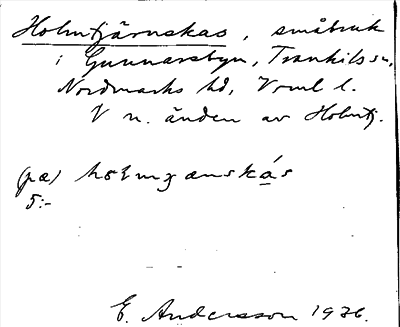 Holmtjärnskas, småbruk
i Gunnarsbyn, Trankils sn,
Nordmarks hd, Vrml l.
V n. änden av Holmtj.
(pæ)
5:-
E. Andersson 1936.